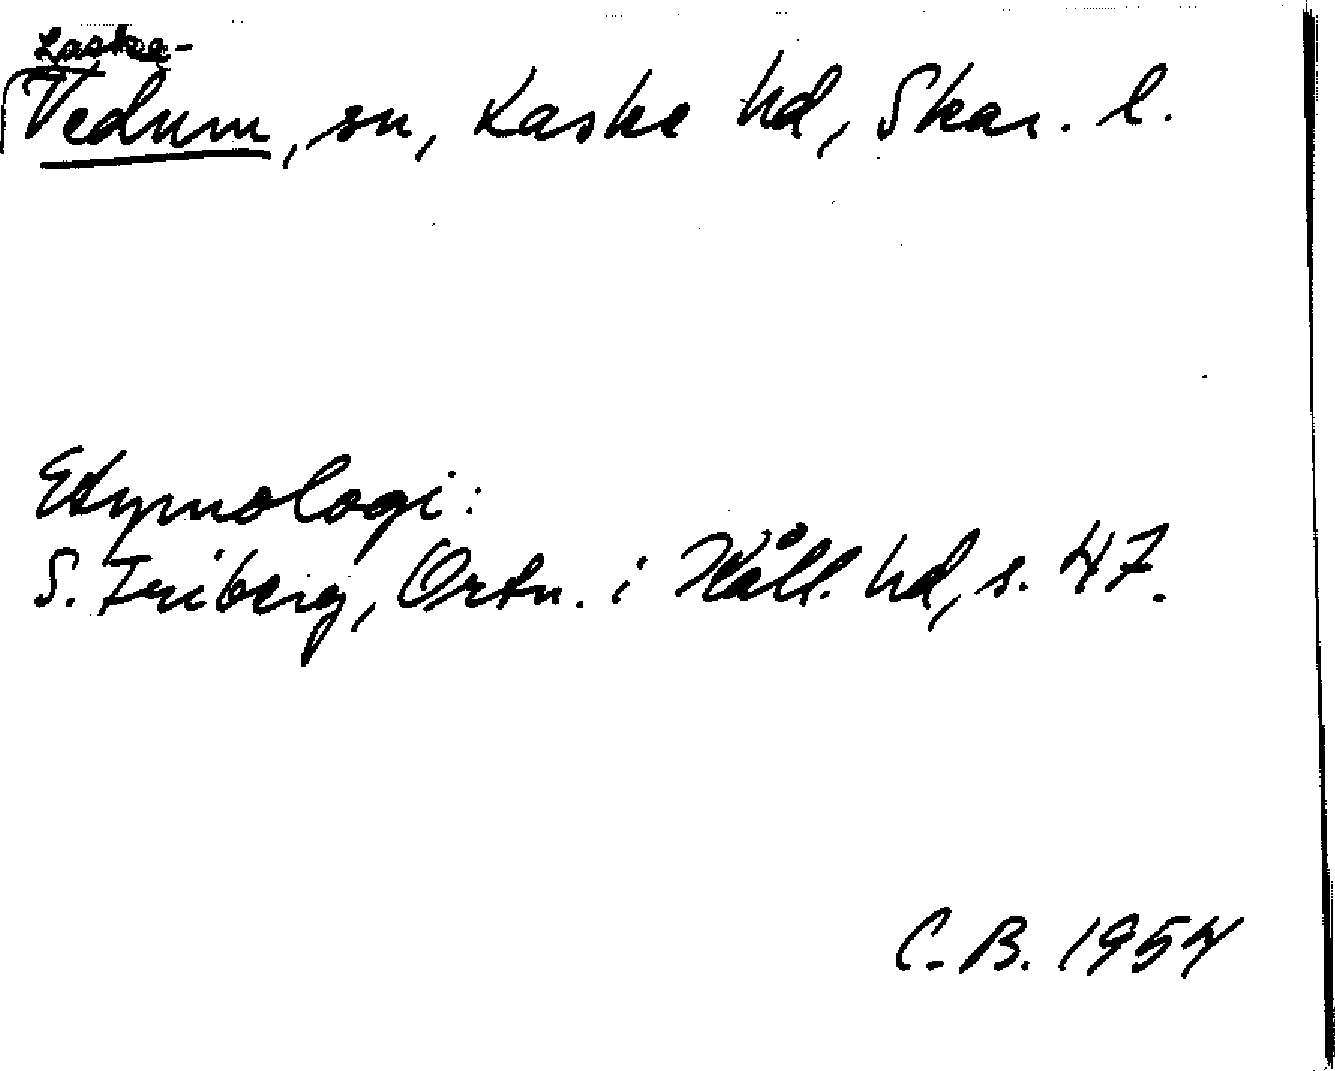 Laske-
Vedum, sn, Laske hd, Skar. l.
Etymologi:
S. Friberg, Ortn. i Kåll. hd, s. 47.
C. B. 1954